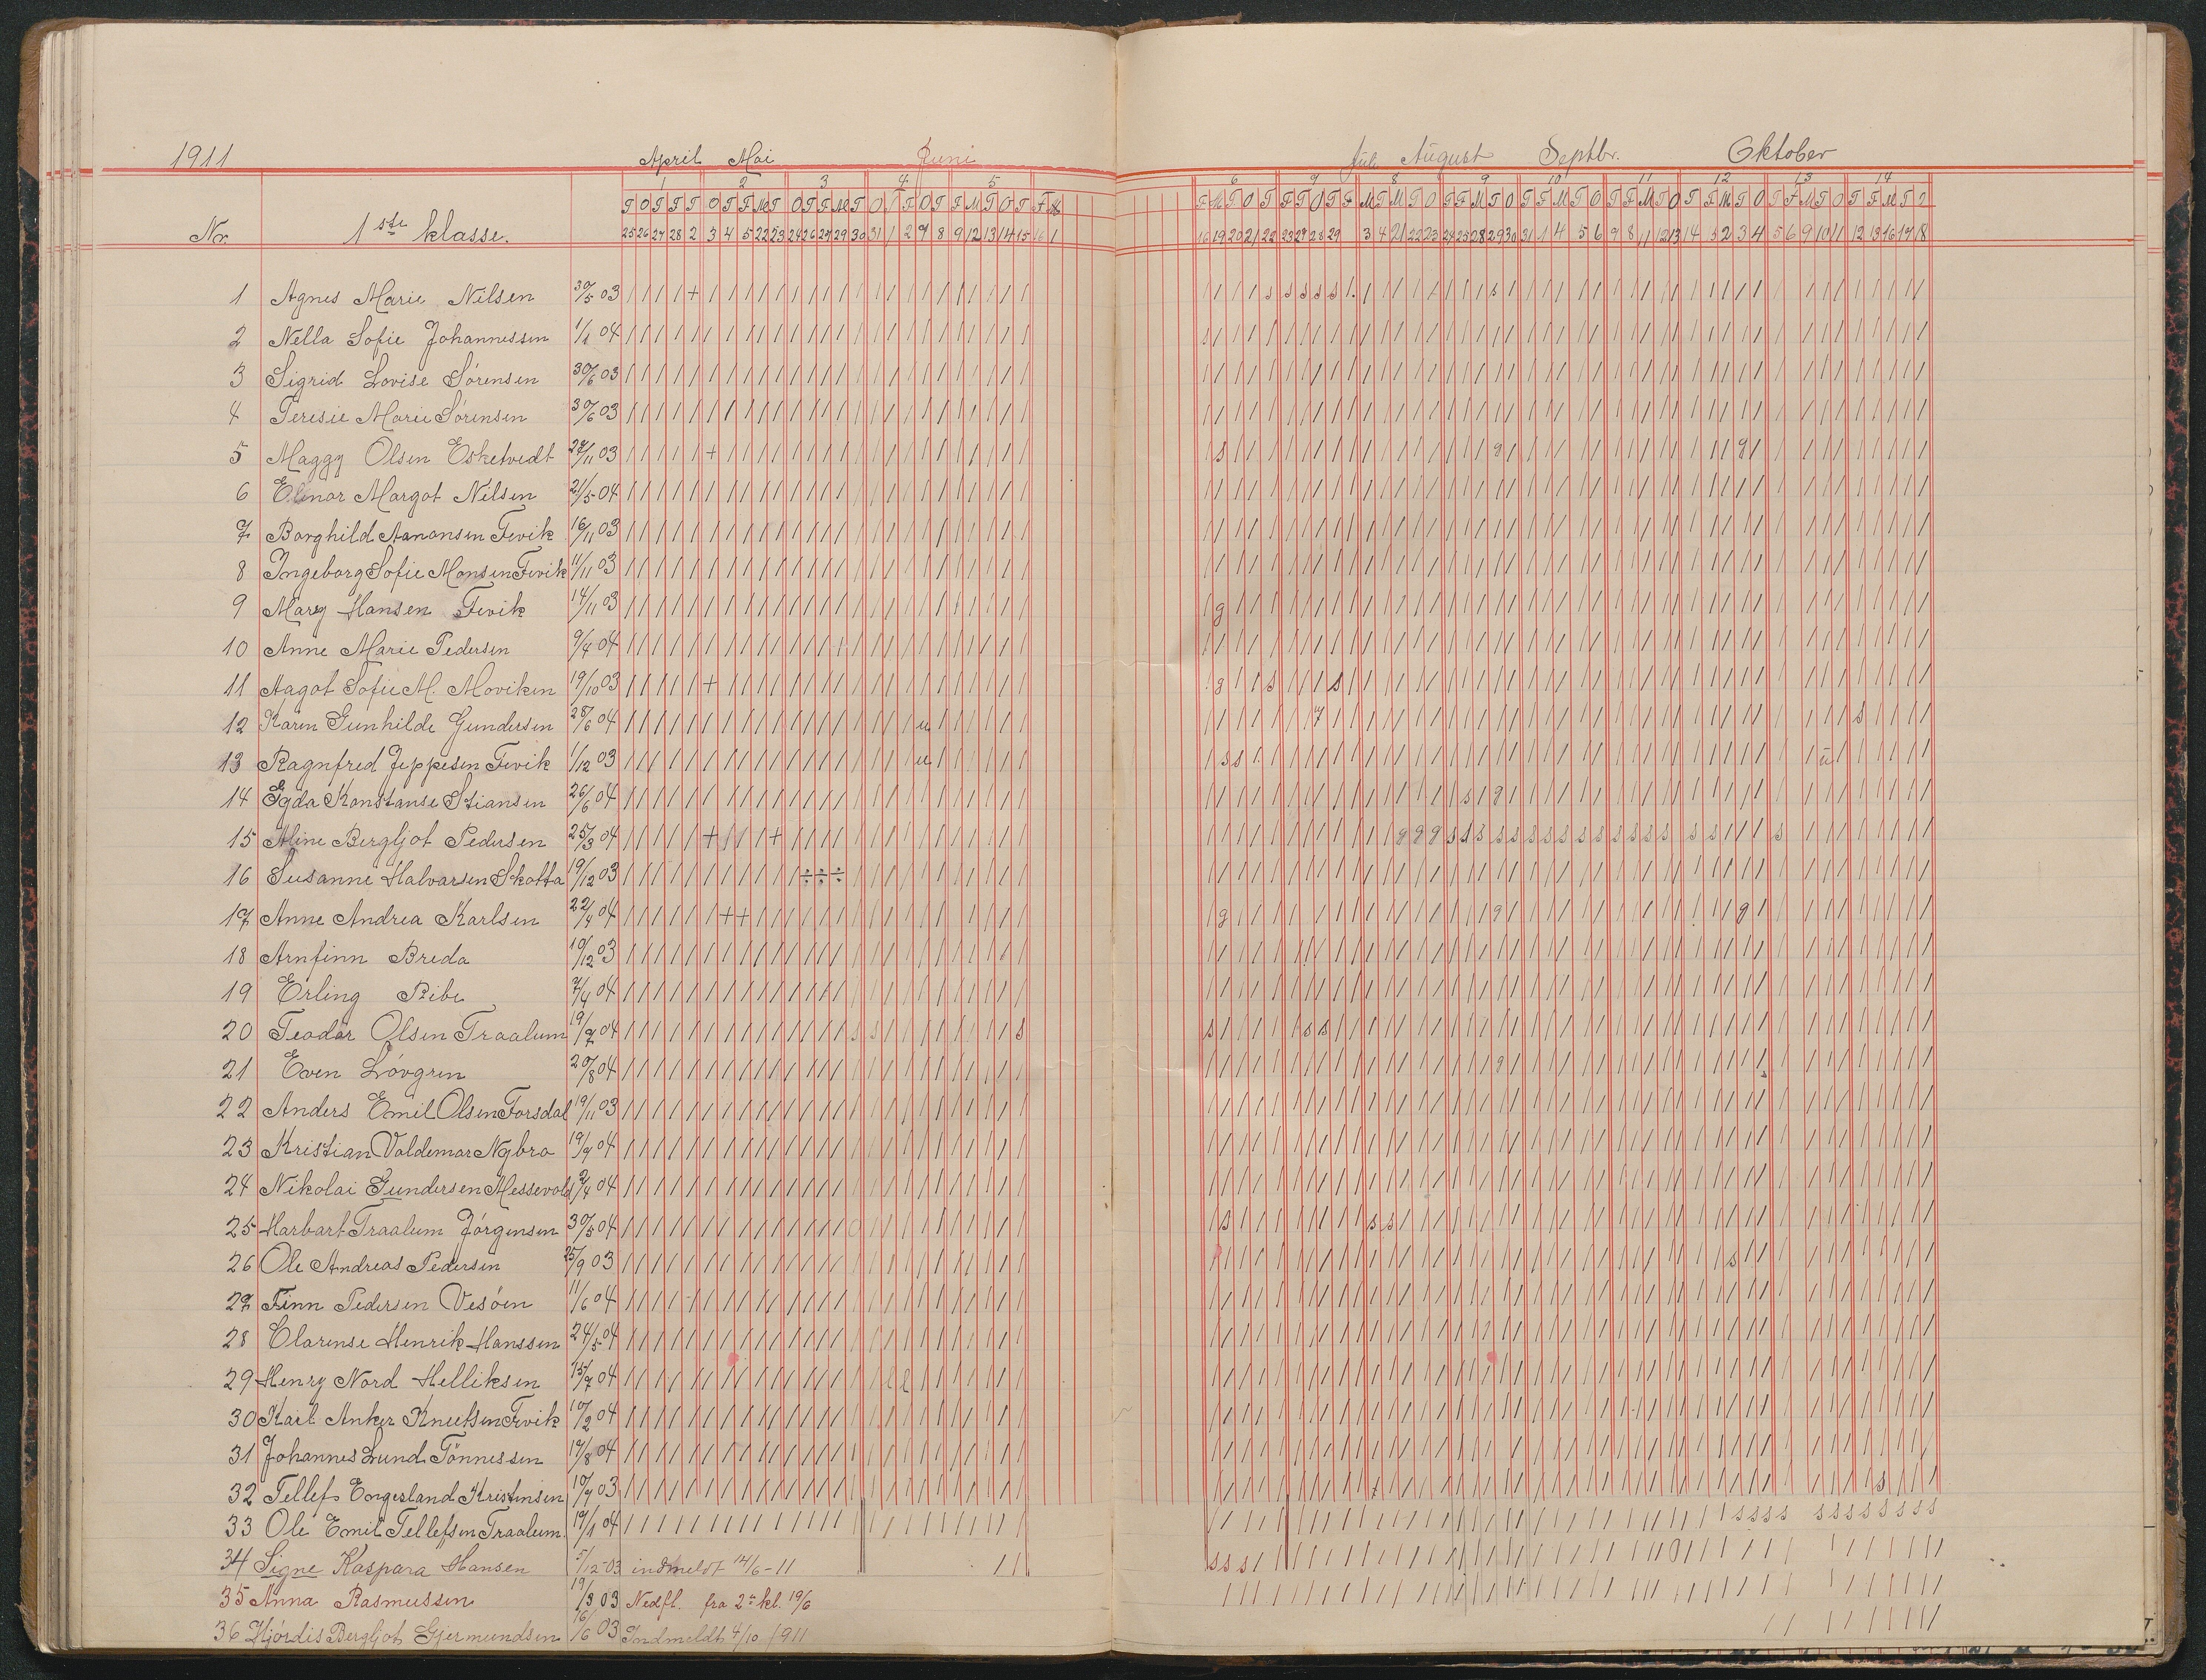 1911 April Mai Juni Juli August Septbr. Oktober
1 2 3 4 5 6 7 8 9 10 11 12 13 14
Nr. 1ste klasse.
25 26 27 28 2 3 4 5 22 23 24 26 27 29 30 31 1 2 7 8 9 12 13 14 15 16 1
16 19 20 21 22 23 27 28 29 3 4 21 22 23 24 25 28 29 30 31 1 4 5 6 7 8 11 12 13 14 3 2 3 4 5 6 9 10 11 12 13 16 17 18
1 Agnes Marie Nilsen 30/5 03
2 Nella Sofie Johannessen 1/1 04
3 Sigrid Lovise Sørensen 30/6 03
4 Teresie Marie Sørensen 30/6 03
5 Maggy Olsen Esketvedt 27/11 03
6 Elinor Margot Nilsen 21/5 04
7 Borghild Aanonsen Fevik 16/11 03
8 Ingeborg Sofie Monsen Fevik 11/11 03
9 Mary Hansen Fevik 14/11 03
10 Anne Marie Pedersen 9/4 04
11 Aagot Sofie M. Moviken 19/10 03
12 Karen Gunhilde Gundersen 28/6 04
13 Ragnfred Jeppesen Fevik 1/12 03
14 Egda Konstanse Stiansen 26/6 04
15 Aline Bergljot Pedersen 25/3 04
16 Susanne Halvarsen Skotta 19/12 03
17 Anne Andrea Karlsen 22/4 04
18 Arnfinn Breda 10/12 03
19 Erling Ribe 7/4 04
20 Teodor Olsen Traalum 19/7 04
21 Even Løvgren 20/8 04
22 Anders Emil Olsen Forsdal 19/11 03
23 Kristian Valdemar Nybro 19/9 04
24 Nikolai Gundersen Messevold 2/4 04
25 Harbart Traalum Jørgensen 30/5 04
26 Ole Andreas Pedersen 25/9 03
27 Finn Pedersen Vesøen 11/6 04
28 Clarense Henrik Hanssen 24/5 04
29 Henry Nord Helliksen 15/7 04
30 Karl Anker Knutsen Fevik 10/2 04
31 Johannes Lund Tønnessen 19/8 04
32 Tellef Engesland Kristensen 10/7 03
33 Ole Emil Tellefsen Traalum. 19/1 04
34 Signe Kaspara Hansen 5/12-03 indmeldt 14/6-11
35 Anna Rasmussen 19/3 03 Nedfl. fra 2n kl. 19/6
36 Hjørdis Bergljot Gjermundsen 16/6 03 Indmeldt 4/10 1911